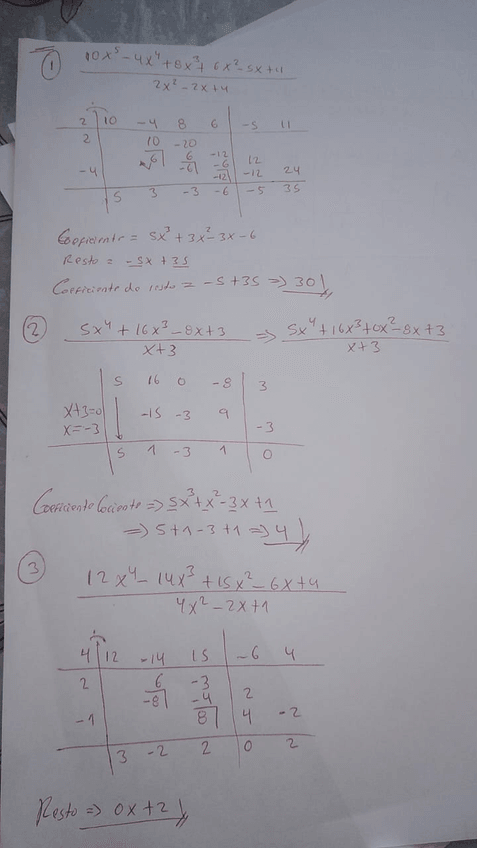 1
10x⁵ - 4x⁴ + 8x³ + 6x² - 5x + 11
2x² - 2x + 4
2 10 -4 8 6 -5 11
2 10 -20
6 6 -12 12
-6 -6 -12
-4 -12 24
5 3 -3 -6 -5 35
Coeficiente = 5x³ + 3x² - 3x - 6
Resto = -5x + 35
Coeficiente do resto = -5 + 35 => 30
2
5x⁴ + 16x³ - 8x + 3 => 5x⁴ + 16x³ + 0x² - 8x + 3
x+3 x+3
5 16 0 -8 3
x+3=0 -15 -3 9
x=-3 -3
5 1 -3 1 0
Coeficiente Cociente => 5x³ + x² - 3x + 1
=> 5 + 1 - 3 + 1 => 4
3
12x⁴ - 14x³ + 15x² - 6x + 4
4x² - 2x + 1
4 12 -14 15 -6 4
2 6 -3 2
-8 -4
-1 8 4 -2
3 -2 2 0 2
Resto => 0x + 2